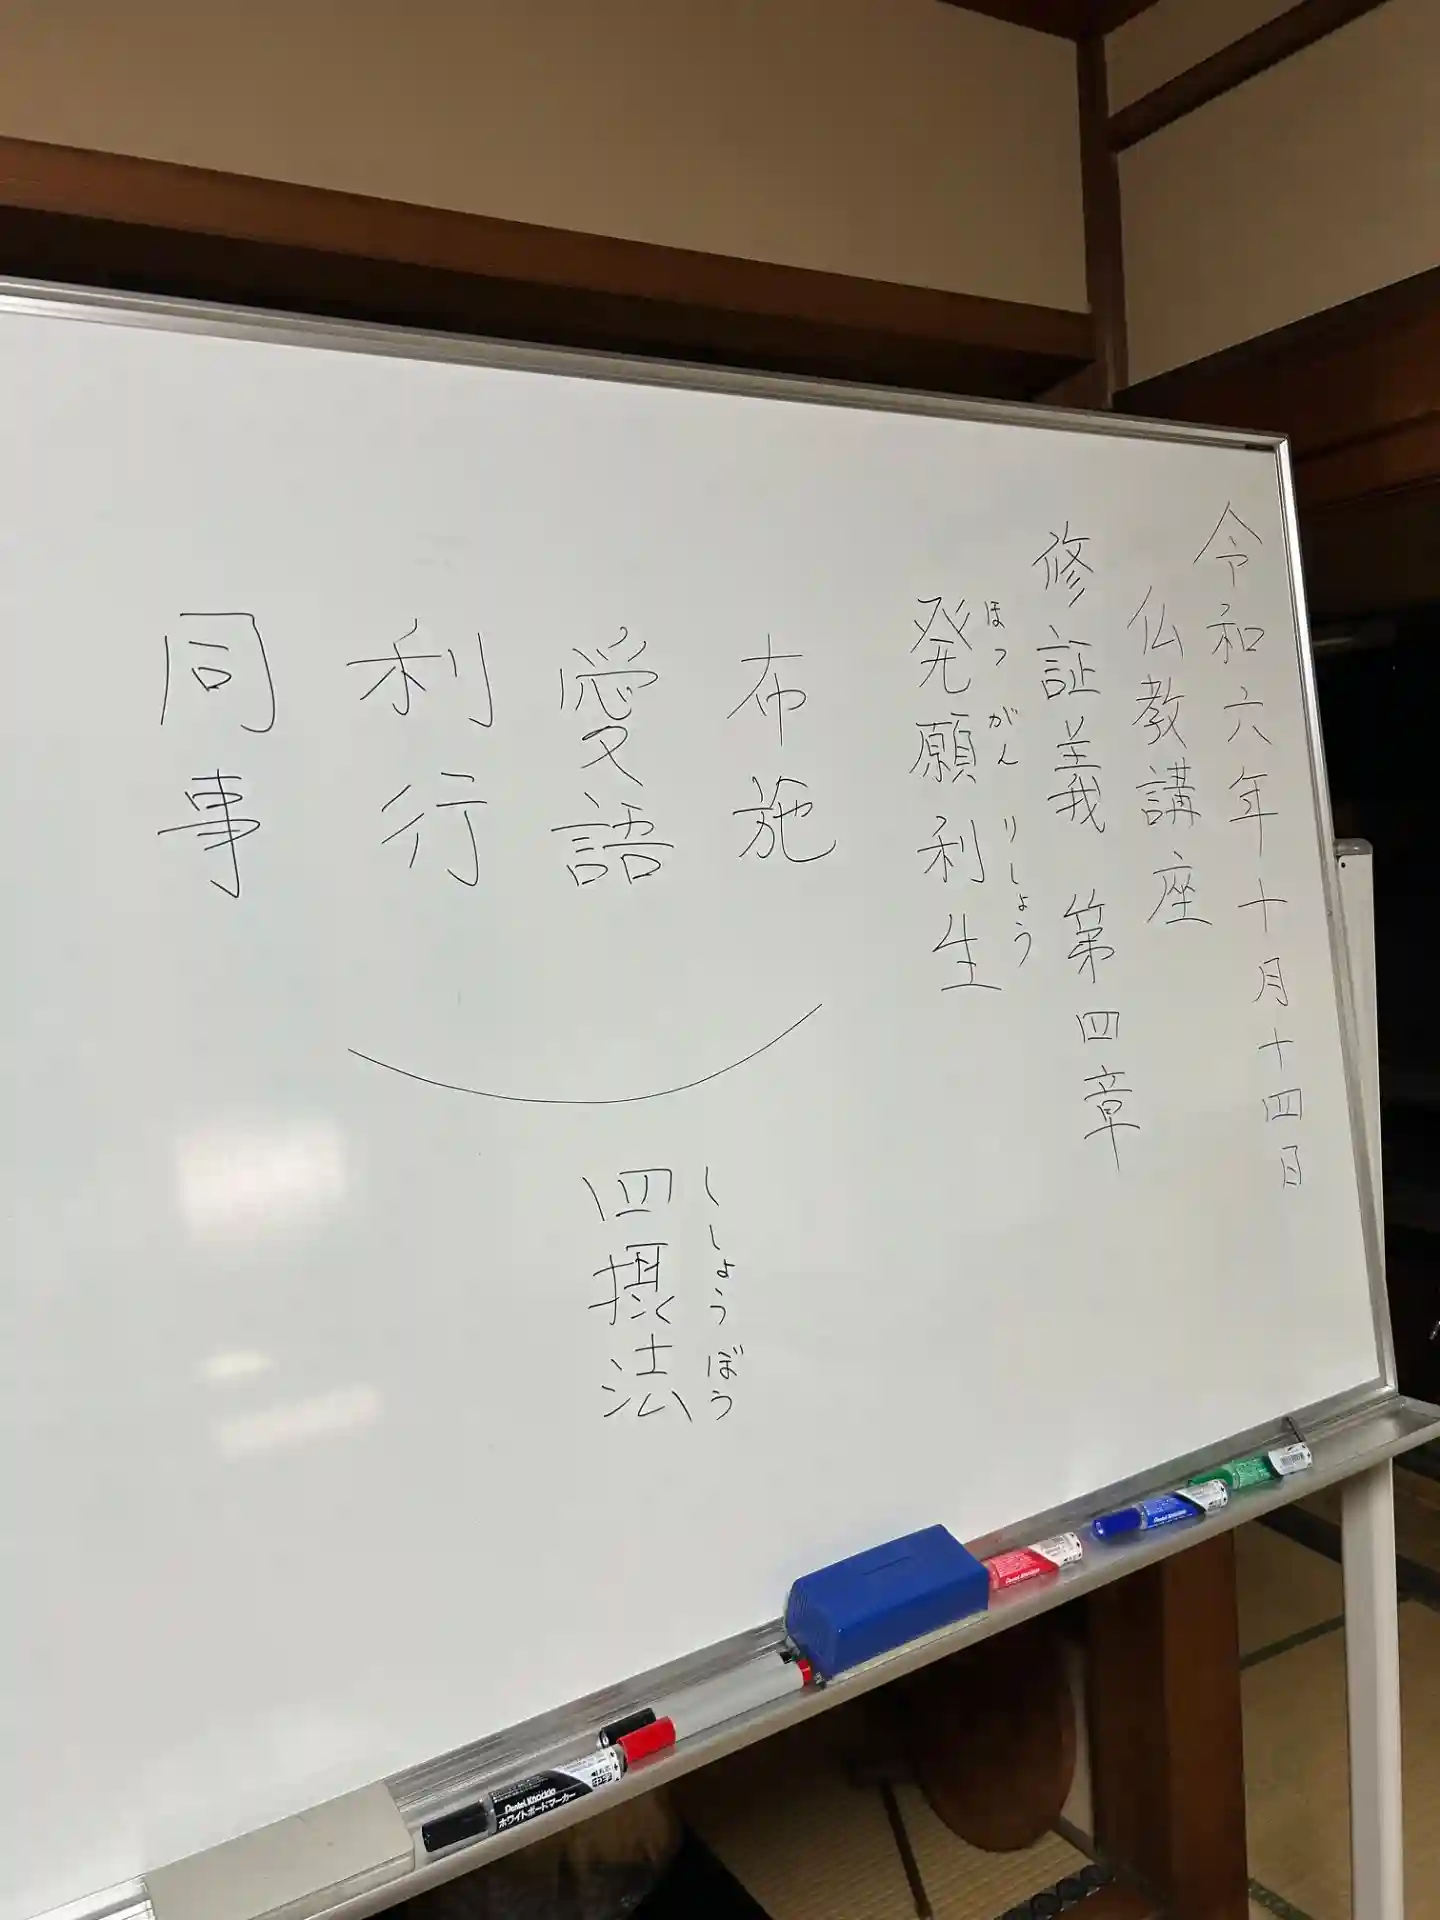 令和六年十月十四日
仏教講座
修証義 第四章
ほつ がん りしょう
発願利生
布施
愛語
利行
同事
ししょうぼう
四摂法
Pentel Knockle
ホワイトボードマーカー
中字